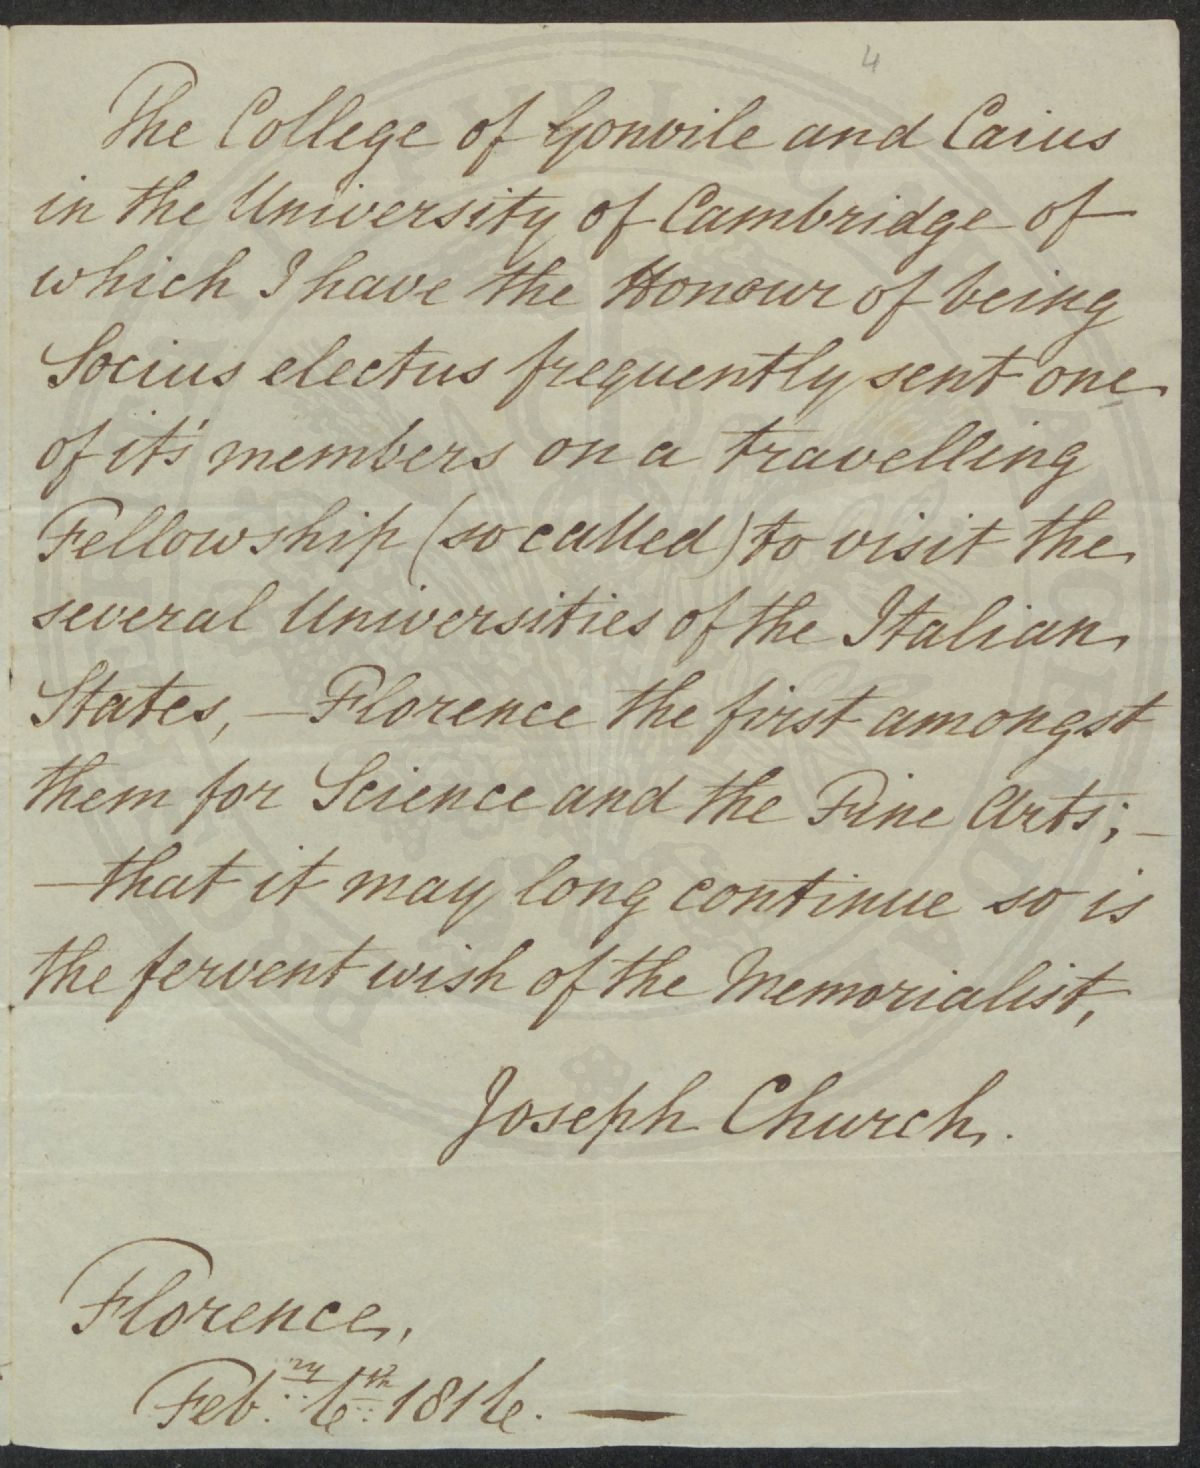 4
The College of Gonvile and Caius
in the University of Cambridge of
which I have the Honour of being
Socius electus frequently sent one
of it's members on a travelling
Fellowship (so called) to visit the
several Universities of the Italian
States, — Florence the first amongst
them for Science and the Fine Arts; —
— that it may long continue so is
the fervent wish of the Memorialist,
Joseph Church.
Florence,
Feb.ry 6th 1816. —